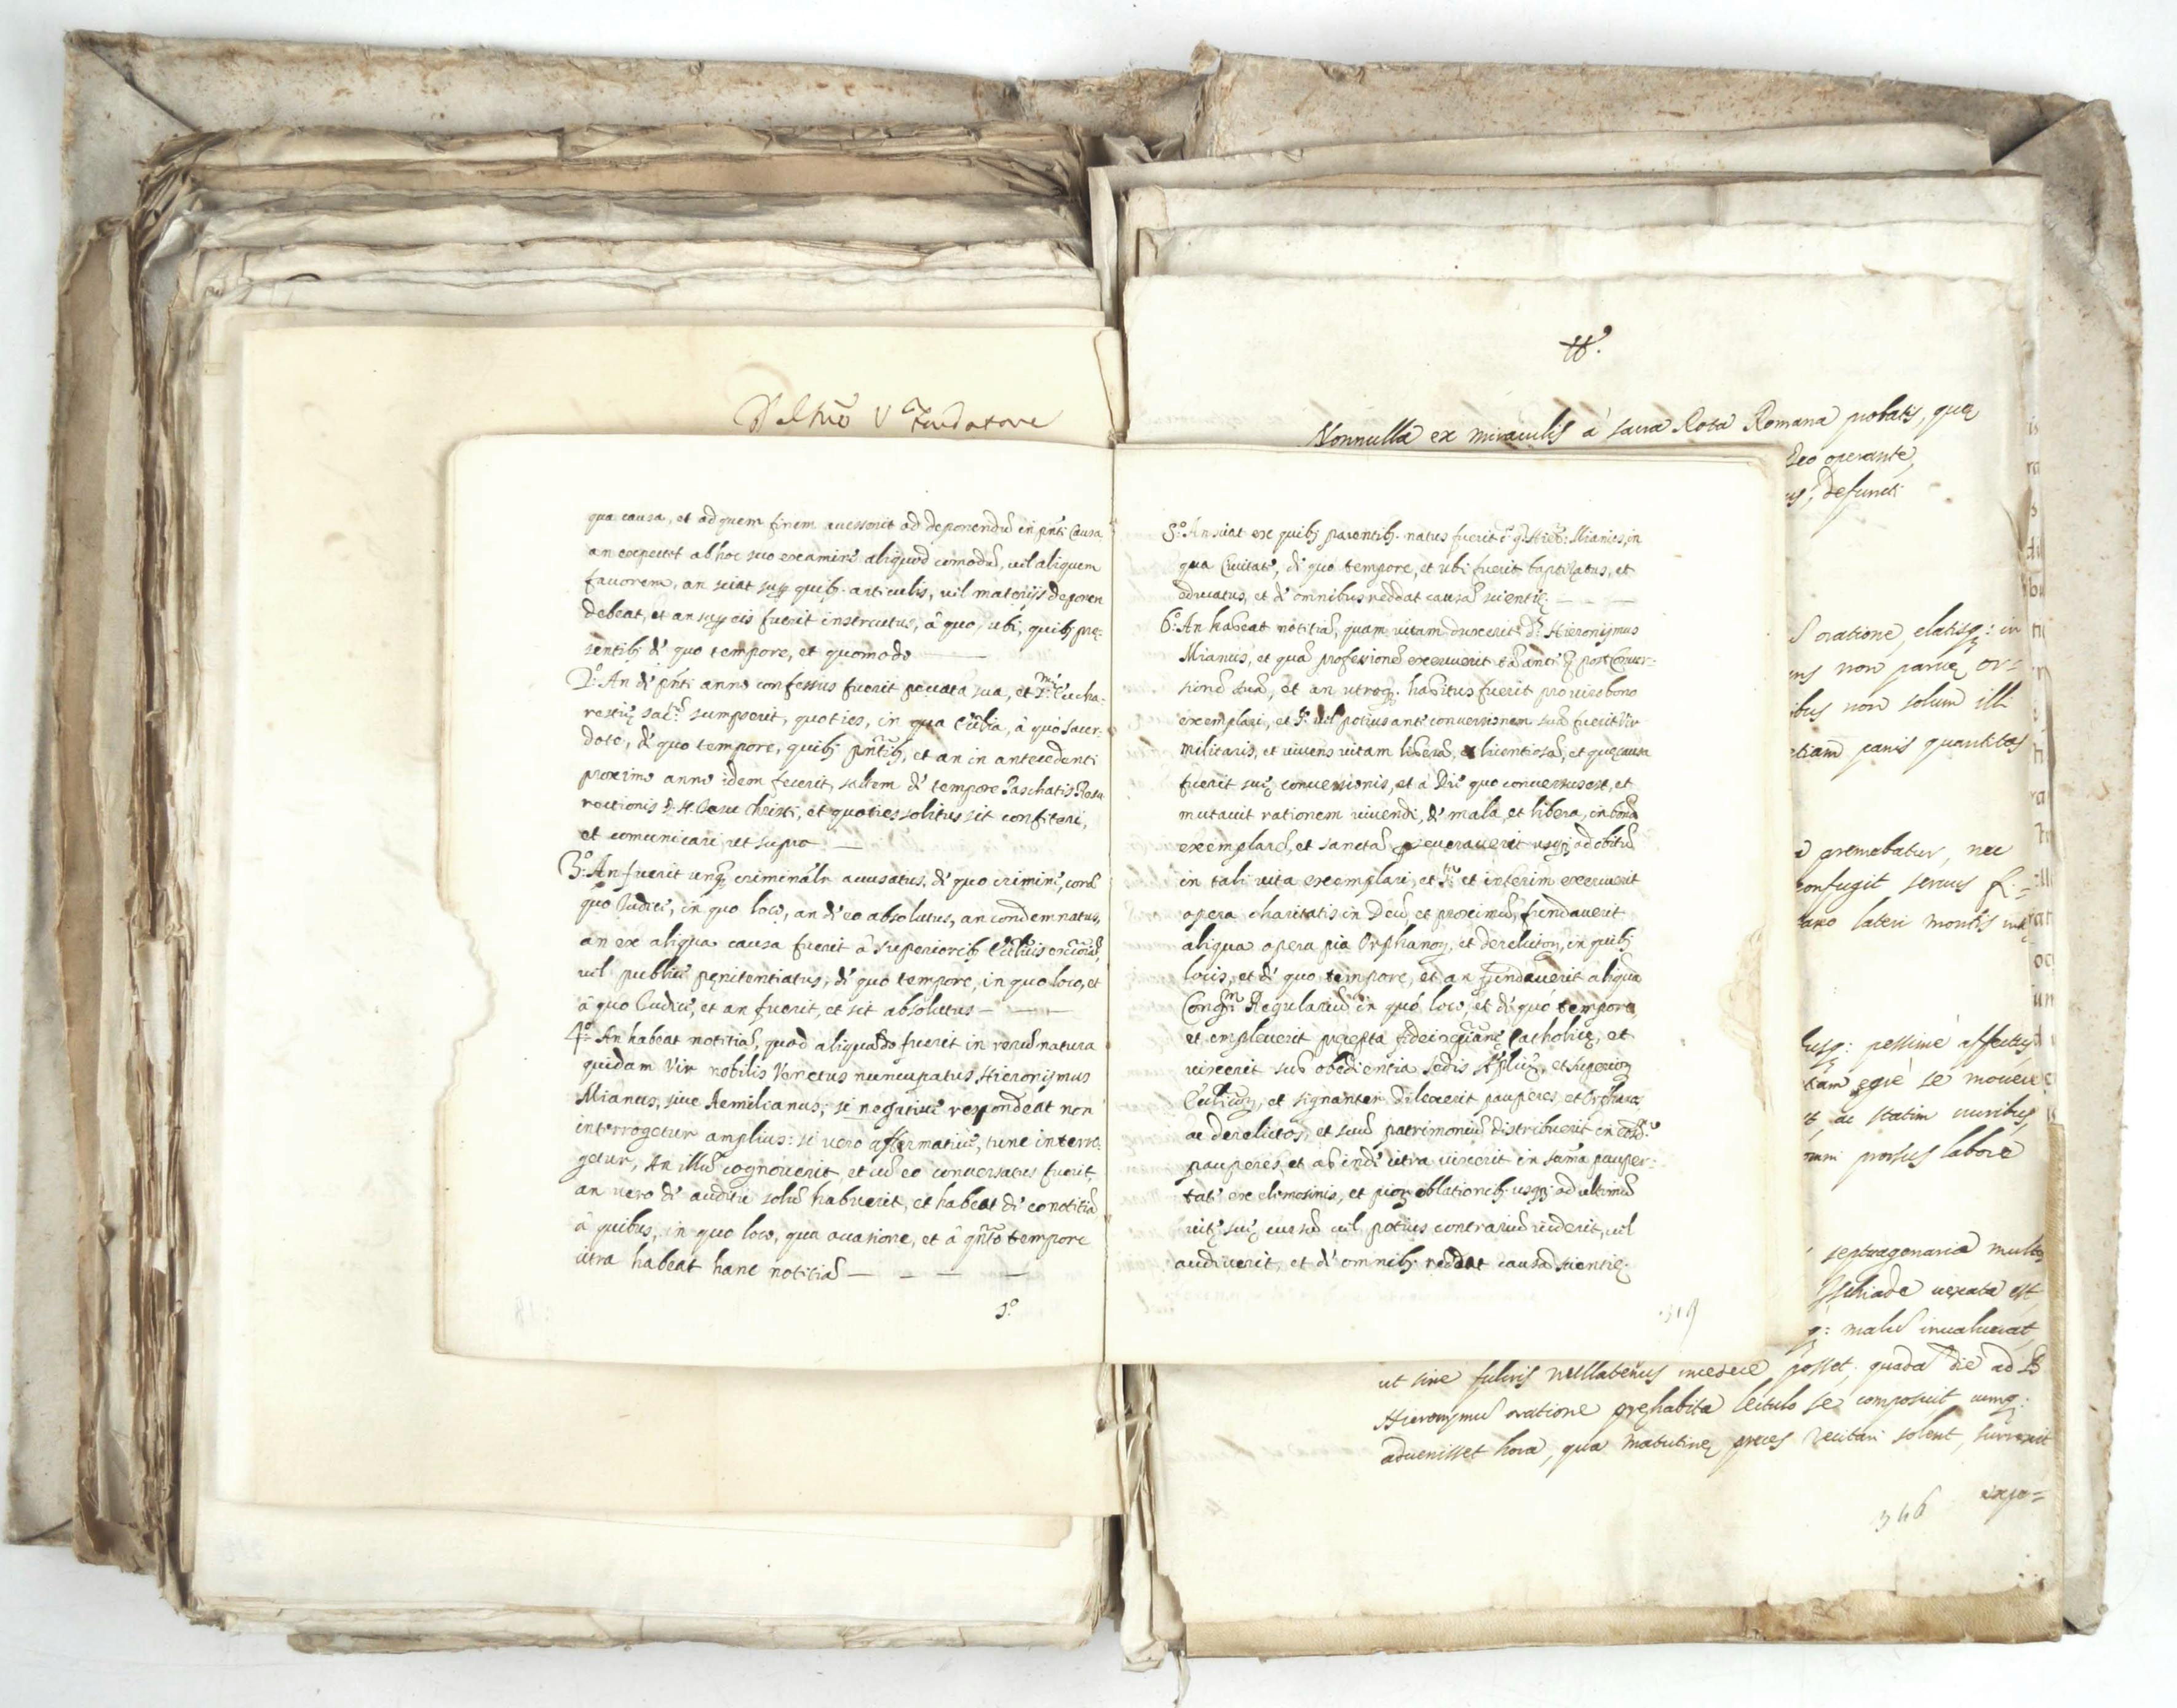 Del Vto V Fundatore
qua causa, et ad quem finem accesserit ad deponendũ in pnti Causa
an expectet ab hoc suo examine aliquod comodũ, vel aliquem
favorem, an sciat sup quib. articulis, vel materijs deponere
debeat, et an sup eis fuerit instructus, à quo, ubi, quib. prę-
sentib. de quo tempore, et quomodo
2.º An de pnti anno confessus fuerit peccata sua, et S.mę Eucha-
ristię Sac.m sumpserit, quoties, in qua Ecclia, à quo Sacer-
dote, de quo tempore, quib. pntib, et an in antecedenti
proximo anno idem fecerit, saltem de tempore Paschatis Resu-
rectionis D. N. Iesu Christi, et quoties solitus sit confiteri,
et comunicari, ret supra
3.º An fuerit unq criminalr accusatus, de quo crimine, corã
quo Iudice, in quo loco, an de eo absolutus, an condemnatus,
an ex aliqua causa fuerit à superiorib. Ecclicis excõicat,
vel publice pęnitentiatus, de quo tempore, in quo loco, et
à quo Iudice, et an fuerit, et sit absolutus
4.º An habeat notitiã, quod aliquando fuerit in rerũ natura
quidam Vir nobilis Venetus nuncupatus Hieronijmus
Mianus, sive Aemilianus; si negative respondeat non
interrogetur amplius: si vero affirmative, tunc interro-
getur, An illũ cognoverit, et cũ eo conversatus fuerit,
an vero de auditu solũ habuerit, et habeat de eo notitiã
à quibus, in quo loco, qua occasione, et à qnto tempore
citra habeat hanc notitiã
5.º
5.º An sciat ex quib. parentib. natus fuerit d. q. Hier: Mianus, in
qua Civitate, de quo tempore, et ubi fuerit baptizatus, et
educatus, et de omnibus reddat causã scientię
6.º An habeat notitiã, quam vitam duxerit d. Hieronijmus
Mianus, et quã professionẽ exercuerit tã ante q post Conver-
sionẽ suã, et an utroq. habitus fuerit pro viro bono
exemplari, et S.to vel potius ante conversionem suã fuerit Vir
militaris, et vivens vitam liberã, et licentiosã, et quę causa
fuerit suę conversionis, et à Die quo conversus est, et
mutavit rationem vivendi, de mala, et libera, in bonã
exemplarẽ, et sanctã perseveraverit usq; ad obitũ
in tali vita exemplari, et S.ta et interim exercuerit
opera charitatis in Deũ, et proximũ, fundaverit
aliqua opera pia Orphanoȝ, et derelictoȝ, in quib.
locis, et de quo tempore, et an fundaverit aliquã
Congnẽ Regulariũ in quo loco, et de quo tempore
et impleverit pręcepta fidei Xpianę Catholicę, et
vixerit sub obedientia Sedis Aplicę, et superioȝ
Ecclicoȝ, et signanter dilexerit pauperes et Orphanos
ac derelictos, et suũ patrimoniũ distribuerit in eosdẽ
pauperes, et ab inde citra vixerit in sũma pauper-
tate ex elimosinis, et pioȝ oblationib. usq; ad ultimũ
vitę suę cursũ vel potius contrariũ viderit, vel
audiverit, et de omnib. reddat causã scientię
319
Nonnulla ex miraculis à sacra Rota Romana probatis, quę
Deo operante,
us, defuncti
oratione, elatisq: in
ns non parvę or=
ibus non solum illi
etiam panis quantitas
premebatur, nec
confugit servus
lateri montis
usq: pessimè affectus
tam egrè se movere
t, ac statim viribus
prorsus labore
septuagenaria multos
Ischiade vexata est
q: malũ invaluerat,
ut sine fulcris nullatenus incedere posset. quadã die ad B
Hieronymũ oratione pręhabita lectulo se composuit, cumq:
advenisset hora, qua matutinę preces recitari solent, surrexit
expe=
346